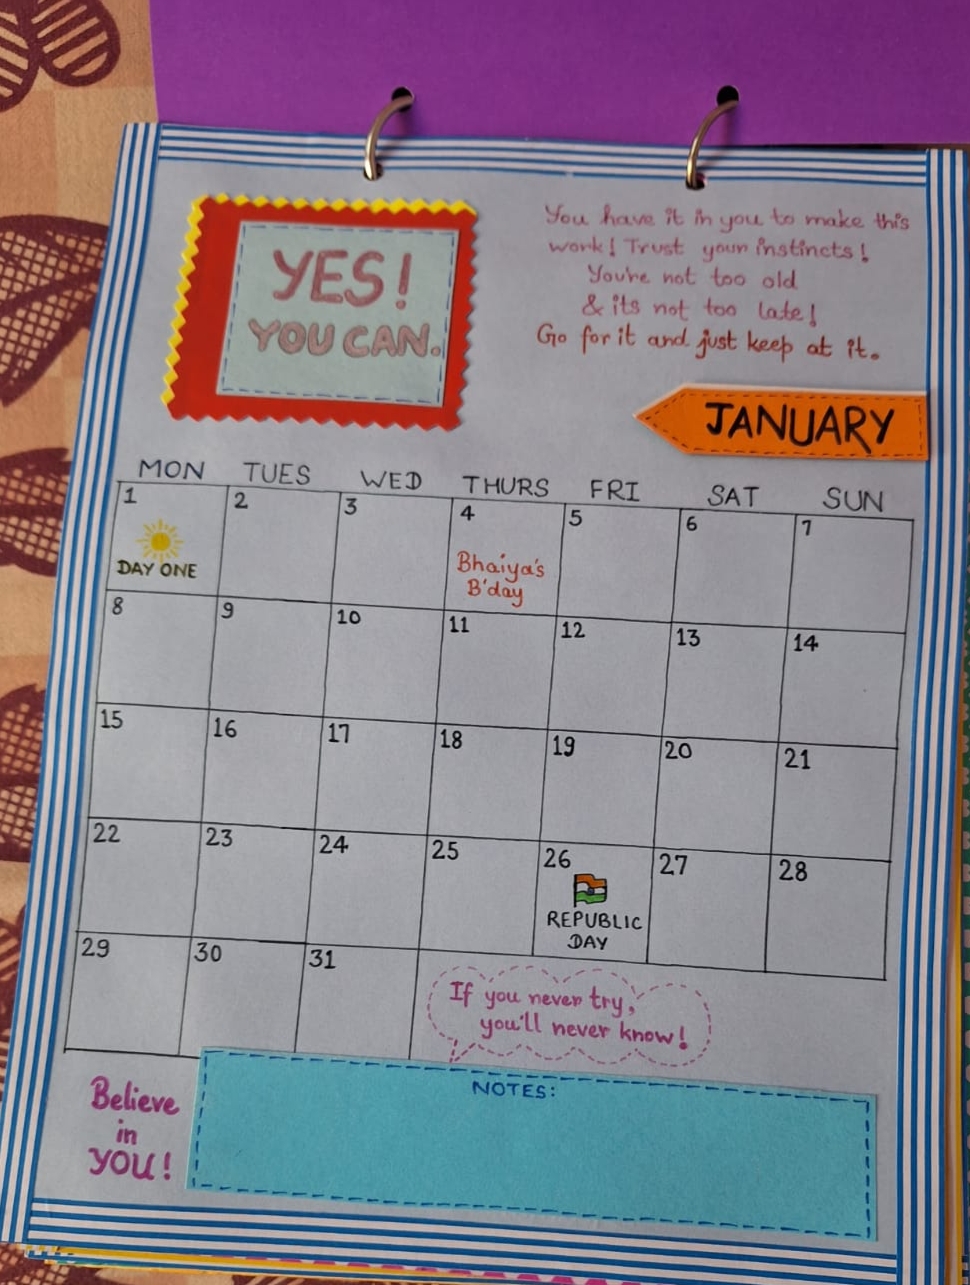 YES!
YOU CAN.
You have it in you to make this
work! Trust your instincts!
You're not too old
& its not too late!
Go for it and just keep at it.
JANUARY
MON TUES WED THURS FRI SAT SUN
1 2 3 4 5 6 7
DAY ONE
Bhaiya's
B'day
8 9 10 11 12 13 14
15 16 17 18 19 20 21
22 23 24 25 26 27 28
REPUBLIC
DAY
29 30 31
If you never try,
you'll never know!
NOTES:
Believe
in
YOU!